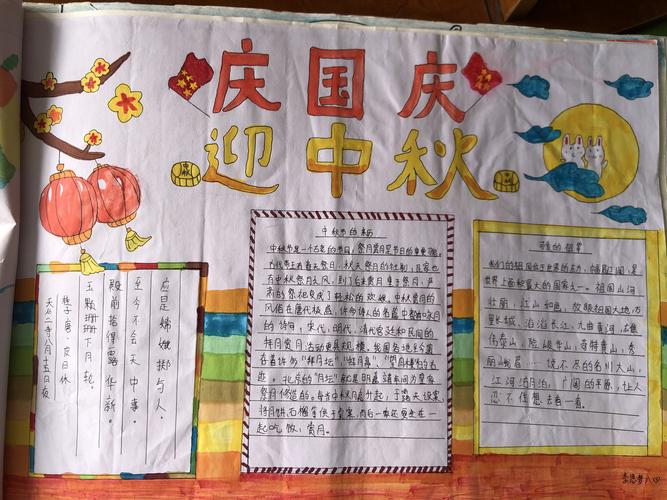 庆国庆
迎中秋
天竺寺八月十五日夜
桂子唐·皮日休
玉颗珊珊下月轮,
殿前拾得露华新。
至今不会天中事,
应是嫦娥掷与人。
中秋节的来历
中秋节是一个古老的节日,祭月赏月是节日的重要习俗。
古代帝王有春天祭日,秋天祭月的社制,民家也
有中秋祭月之风,到了后来赏月重于祭月,严
肃的祭祀变成了轻松的欢娱。中秋赏月的
风俗在唐代极盛,许多诗人的名篇中都有咏月
的诗句,宋代、明代、清代宫廷和民间的
拜月赏月活动更具规模。我国各地至今遗
存着许多"拜月坛""拜月亭""望月楼"的古
迹。北京的"月坛"就是明嘉靖年间为皇家
祭月修造的。每当中秋月亮升起,于露天设案,
将月饼、石榴等供于桌案,而后一家还要坐在一
起吃饭,赏月。
可爱的祖国
我们的祖国位于世界的东方,幅员辽阔,是
世界上面积最大的国家之一。祖国山河
壮丽,江山如画,放眼祖国大地:万
里长城、滔滔长江、九曲黄河、雄
伟泰山、险峻华山、奇特黄山,秀
丽峨眉……说不尽的名川大山,
江河湖泊,广阔的平原,让人
忍不住想去看一看。